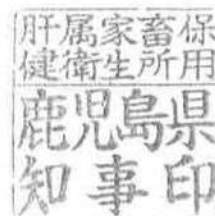 肝属家畜保
健衛生所用
鹿児島県
知事印